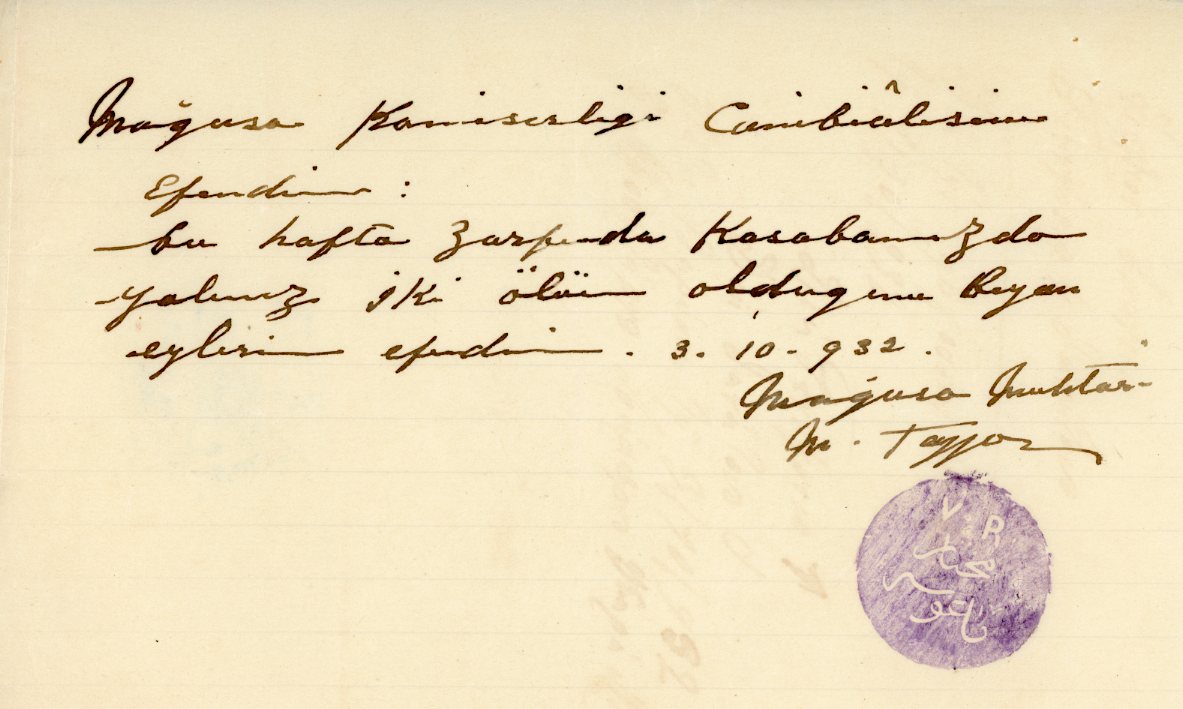 Mağusa Komiserligi Canibiâlisine
Efendim :
bu hafta zarfında Kasabamızda
yalınız iki ölüm oldugunu Beyan
eylerim efendim . 3. 10 - 932 .
Mağusa Muhtarı
M. Tayyar
V R
مختار
ماغوسه